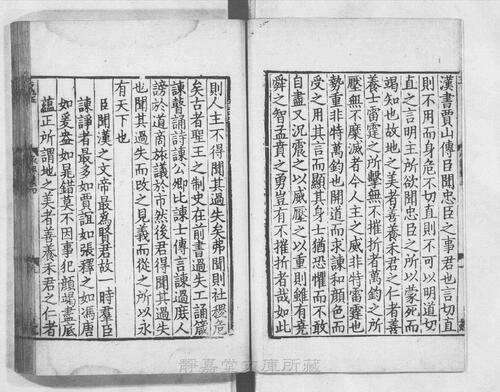 漢書賈山傳臣聞忠臣之事君也言切直
則不用而身危不切直則不可以明道切
直之言明主所欲聞忠臣之所以蒙死而
竭知也故地之美者善養禾君之仁者善
養士雷霆之所擊無不摧折者萬鈞之所
壓無不糜滅者今人主之威非特雷霆也
勢重非特萬鈞也開道而求諫和顔色而
受之用其言而顯其身士猶恐懼而不敢
自盡又況震之以威壓之以重則雖有堯
舜之智孟賁之勇豈有不摧折者哉如此
則人主不得聞其過失矣弗聞則社稷危
矣古者聖王之制史在前書過失工誦箴
諫瞽誦詩諫公卿比諫士傳言諫過庶人
謗於道商旅議於市然後君得聞其過失
也聞其過失而改之見義而從之所以永
有天下也
臣聞漢之文帝最爲賢君故一時羣臣
諫諍者最多如賈誼如張釋之如馮唐
如爰盎如晁錯莫不因事犯顔竭盡底
蘊正所謂地之美者善養禾君之仁者
靜嘉堂文庫所藏